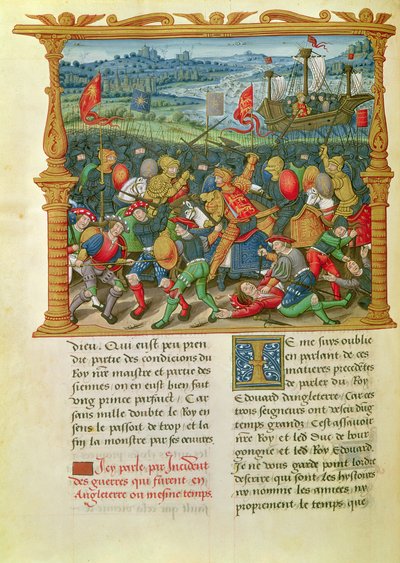 dieu. Qui eust peu pren
dre partie des condicions du
Roy n̄re maistre et partie des
siennes on en eust bien fait
ung prince parfaict / Car
sans mille doubte le Roy en
sens le passoit de trop / et la
fin la monstre par ses œuvres
Icy parle par Incident
des guerres qui furent en
Angleterre ou mesme temps.
IE me suys oublie
en parlant de ces
matieres precedētes
de parler du Roy
Edouard dangleterre / Car ces
trois seigneurs ont vescu dūg
temps grandz / C'est assavoir
n̄re Roy et led Duc de bour
gongne et led Roy Edouard.
Je ne vous garde point lordre
descrire qui font les hystoires
ny nomme les annees / ny
proprement le temps que